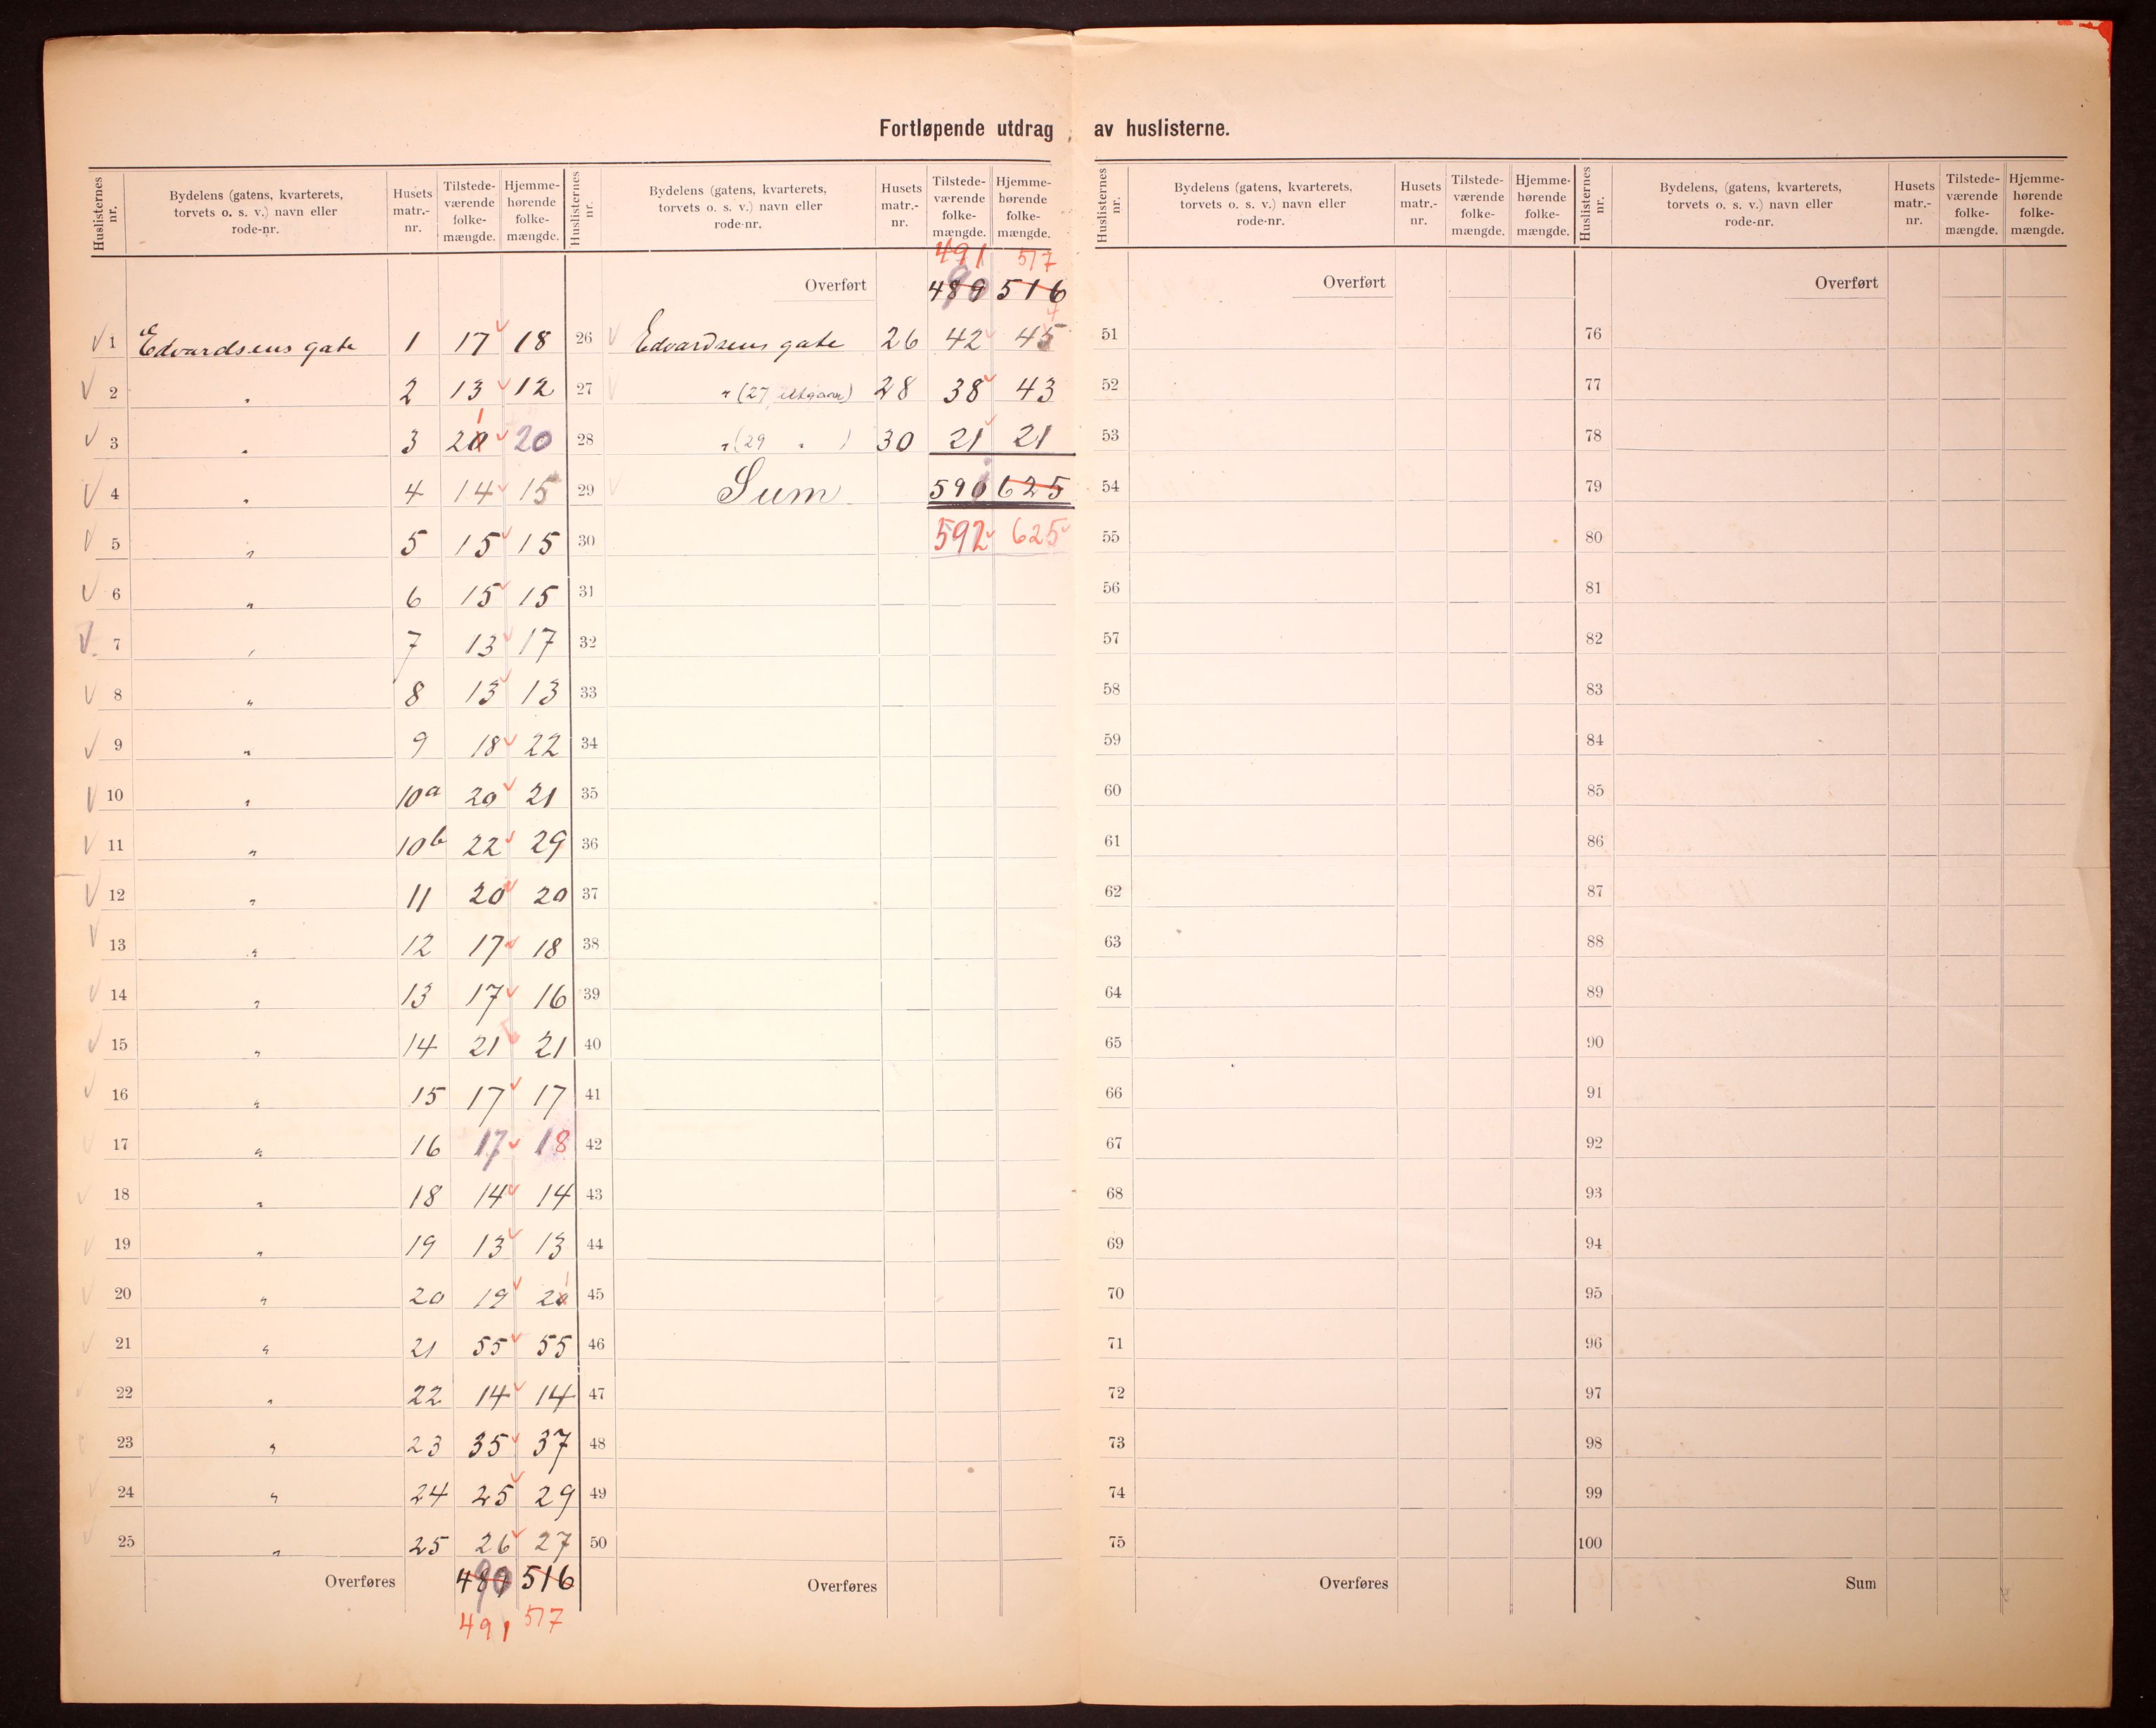 Fortløpende utdrag av huslisterne.
Huslisternes nr. | Bydelens (gatens, kvarterets, torvets o. s. v.) navn eller rode-nr. | Husets matr.-nr. | Tilstede-værende folke-mængde. | Hjemme-hørende folke-mængde.
1 Edvardsens gate 1 17 18
2 " 2 13 12
3 " 3 20 1 20
4 " 4 14 15
5 " 5 15 15
6 " 6 15 15
7 " 7 13 17
8 " 8 13 13
9 " 9 18 22
10 " 10a 20 21
11 " 10b 22 29
12 " 11 20 20
13 " 12 17 18
14 " 13 17 16
15 " 14 21 21
16 " 15 17 17
17 " 16 17 18
18 " 18 14 14
19 " 19 13 13
20 " 20 19 20 1
21 " 21 55 55
22 " 22 14 14
23 " 23 35 37
24 " 24 25 29
25 " 25 26 27
Overføres 490 516
491 517
Huslisternes nr. | Bydelens (gatens, kvarterets, torvets o. s. v.) navn eller rode-nr. | Husets matr.-nr. | Tilstede-værende folke-mængde. | Hjemme-hørende folke-mængde.
491 517
Overført 489 516
26 Edvardsens gate 26 42 45
27 " (27 utgaar) 28 38 43
28 " (29 " ) 30 21 21
29 Sum 590 625
30 592 625
31
32
33
34
35
36
37
38
39
40
41
42
43
44
45
46
47
48
49
50
Overføres
Huslisternes nr. | Bydelens (gatens, kvarterets, torvets o. s. v.) navn eller rode-nr. | Husets matr.-nr. | Tilstede-værende folke-mængde. | Hjemme-hørende folke-mængde.
Overført
51
52
53
54
55
56
57
58
59
60
61
62
63
64
65
66
67
68
69
70
71
72
73
74
75
Overføres
Huslisternes nr. | Bydelens, (gatens, kvarterets, torvets o. s. v.) navn eller rode-nr. | Husets matr.-nr. | Tilstede-værende folke-mængde. | Hjemme-hørende folke-mængde.
Overført
76
77
78
79
80
81
82
83
84
85
86
87
88
89
90
91
92
93
94
95
96
97
98
99
100
Sum